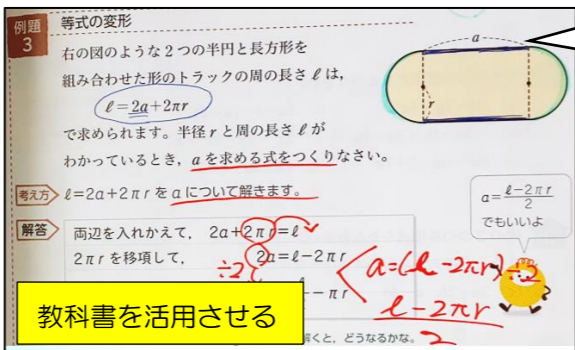 例題 3 等式の変形
右の図のような2つの半円と長方形を
組み合わせた形のトラックの周の長さℓは,
ℓ=2a+2πr
で求められます。半径rと周の長さℓが
わかっているとき, aを求める式をつくりなさい。
a
r
考え方 ℓ=2a+2πrをaについて解きます。
a=ℓ-2πr/2
でもいいよ
解答 両辺を入れかえて, 2a+2πr=ℓ
2πrを移項して, 2a=ℓ-2πr
÷2
-πr
a=(ℓ-2πr)÷2
ℓ-2πr
2
教科書を活用させる
解くと, どうなるかな。